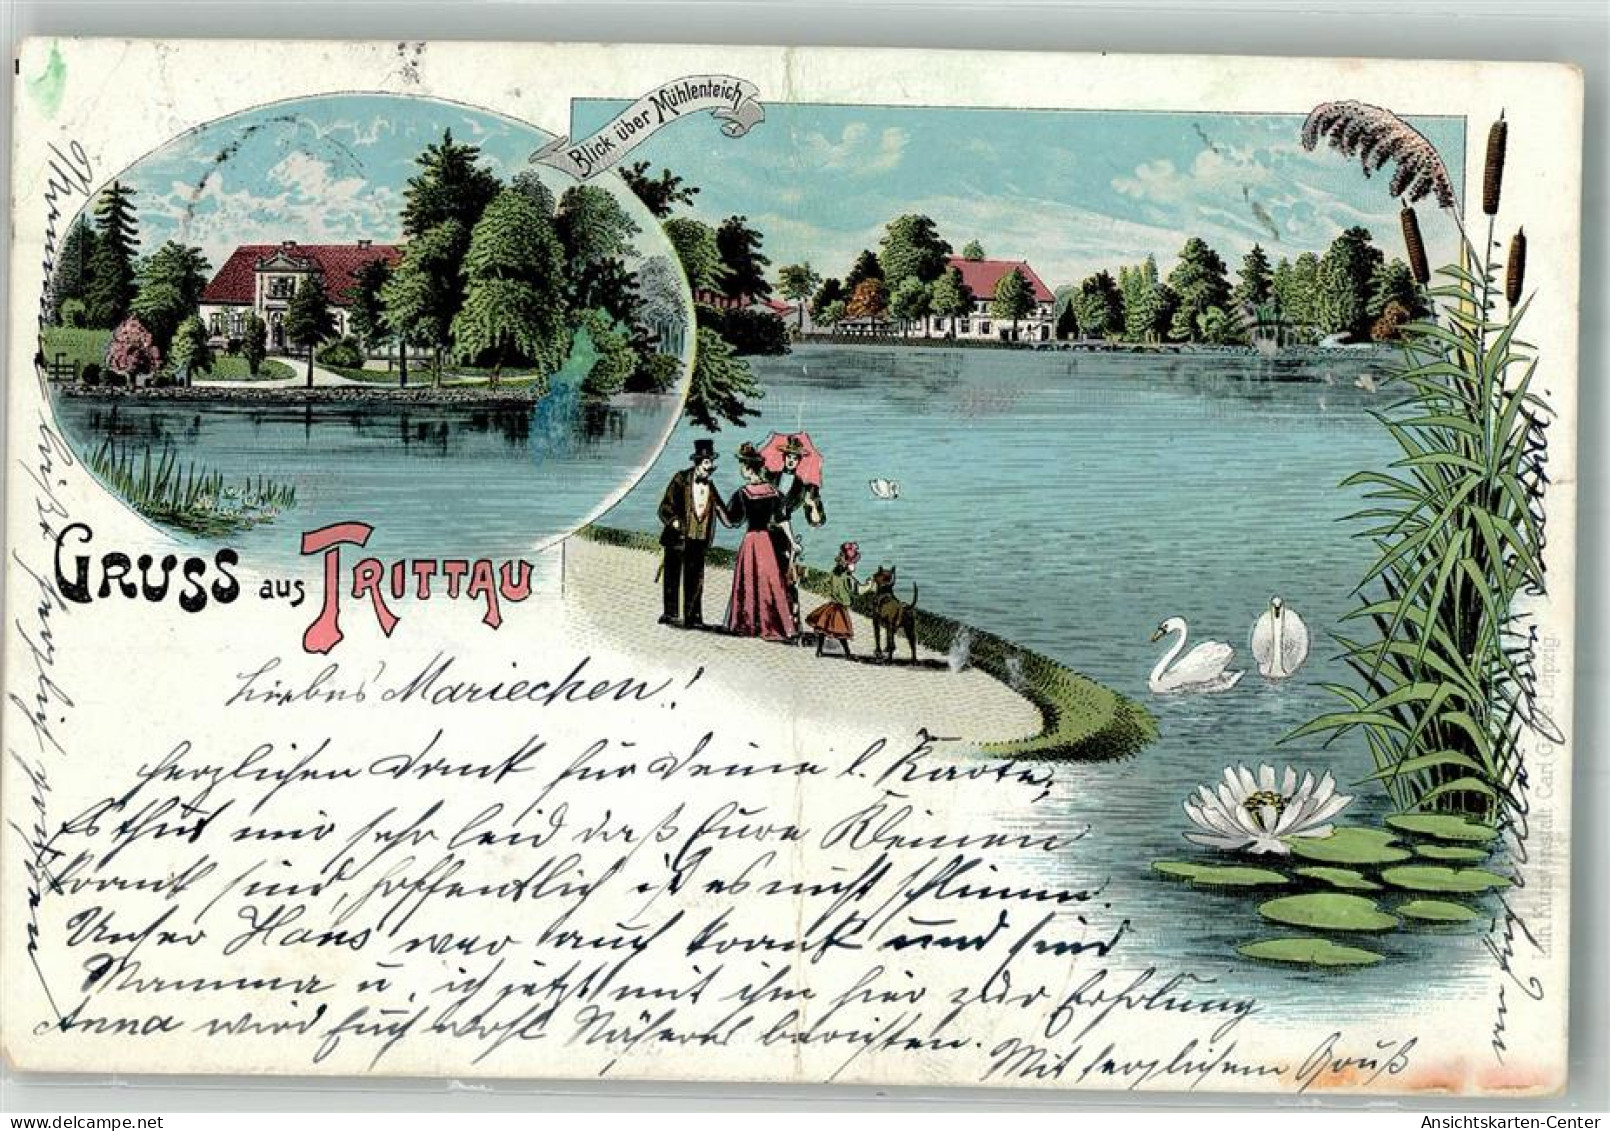 Blick über Mühlenteich
GRUSS aus TRITTAU
Liebes Mariechen!
herzlichen Dank für Deine l. Karte,
Es thut mir sehr leid daß Eure Kleinen
krank sind, hoffentlich ist es nicht schlimm.
Unser Hans war auch krank und sind
Mamma u. ich jetzt mit ihm hier zur Erholung
Anna wird Euch wohl Näheres berichten.
Mit herzlichem Gruß
Mamma läßt herzlich grüßen
Lith. Kunstanstalt Carl G e Leipzig.
Ansichtskarten-Center